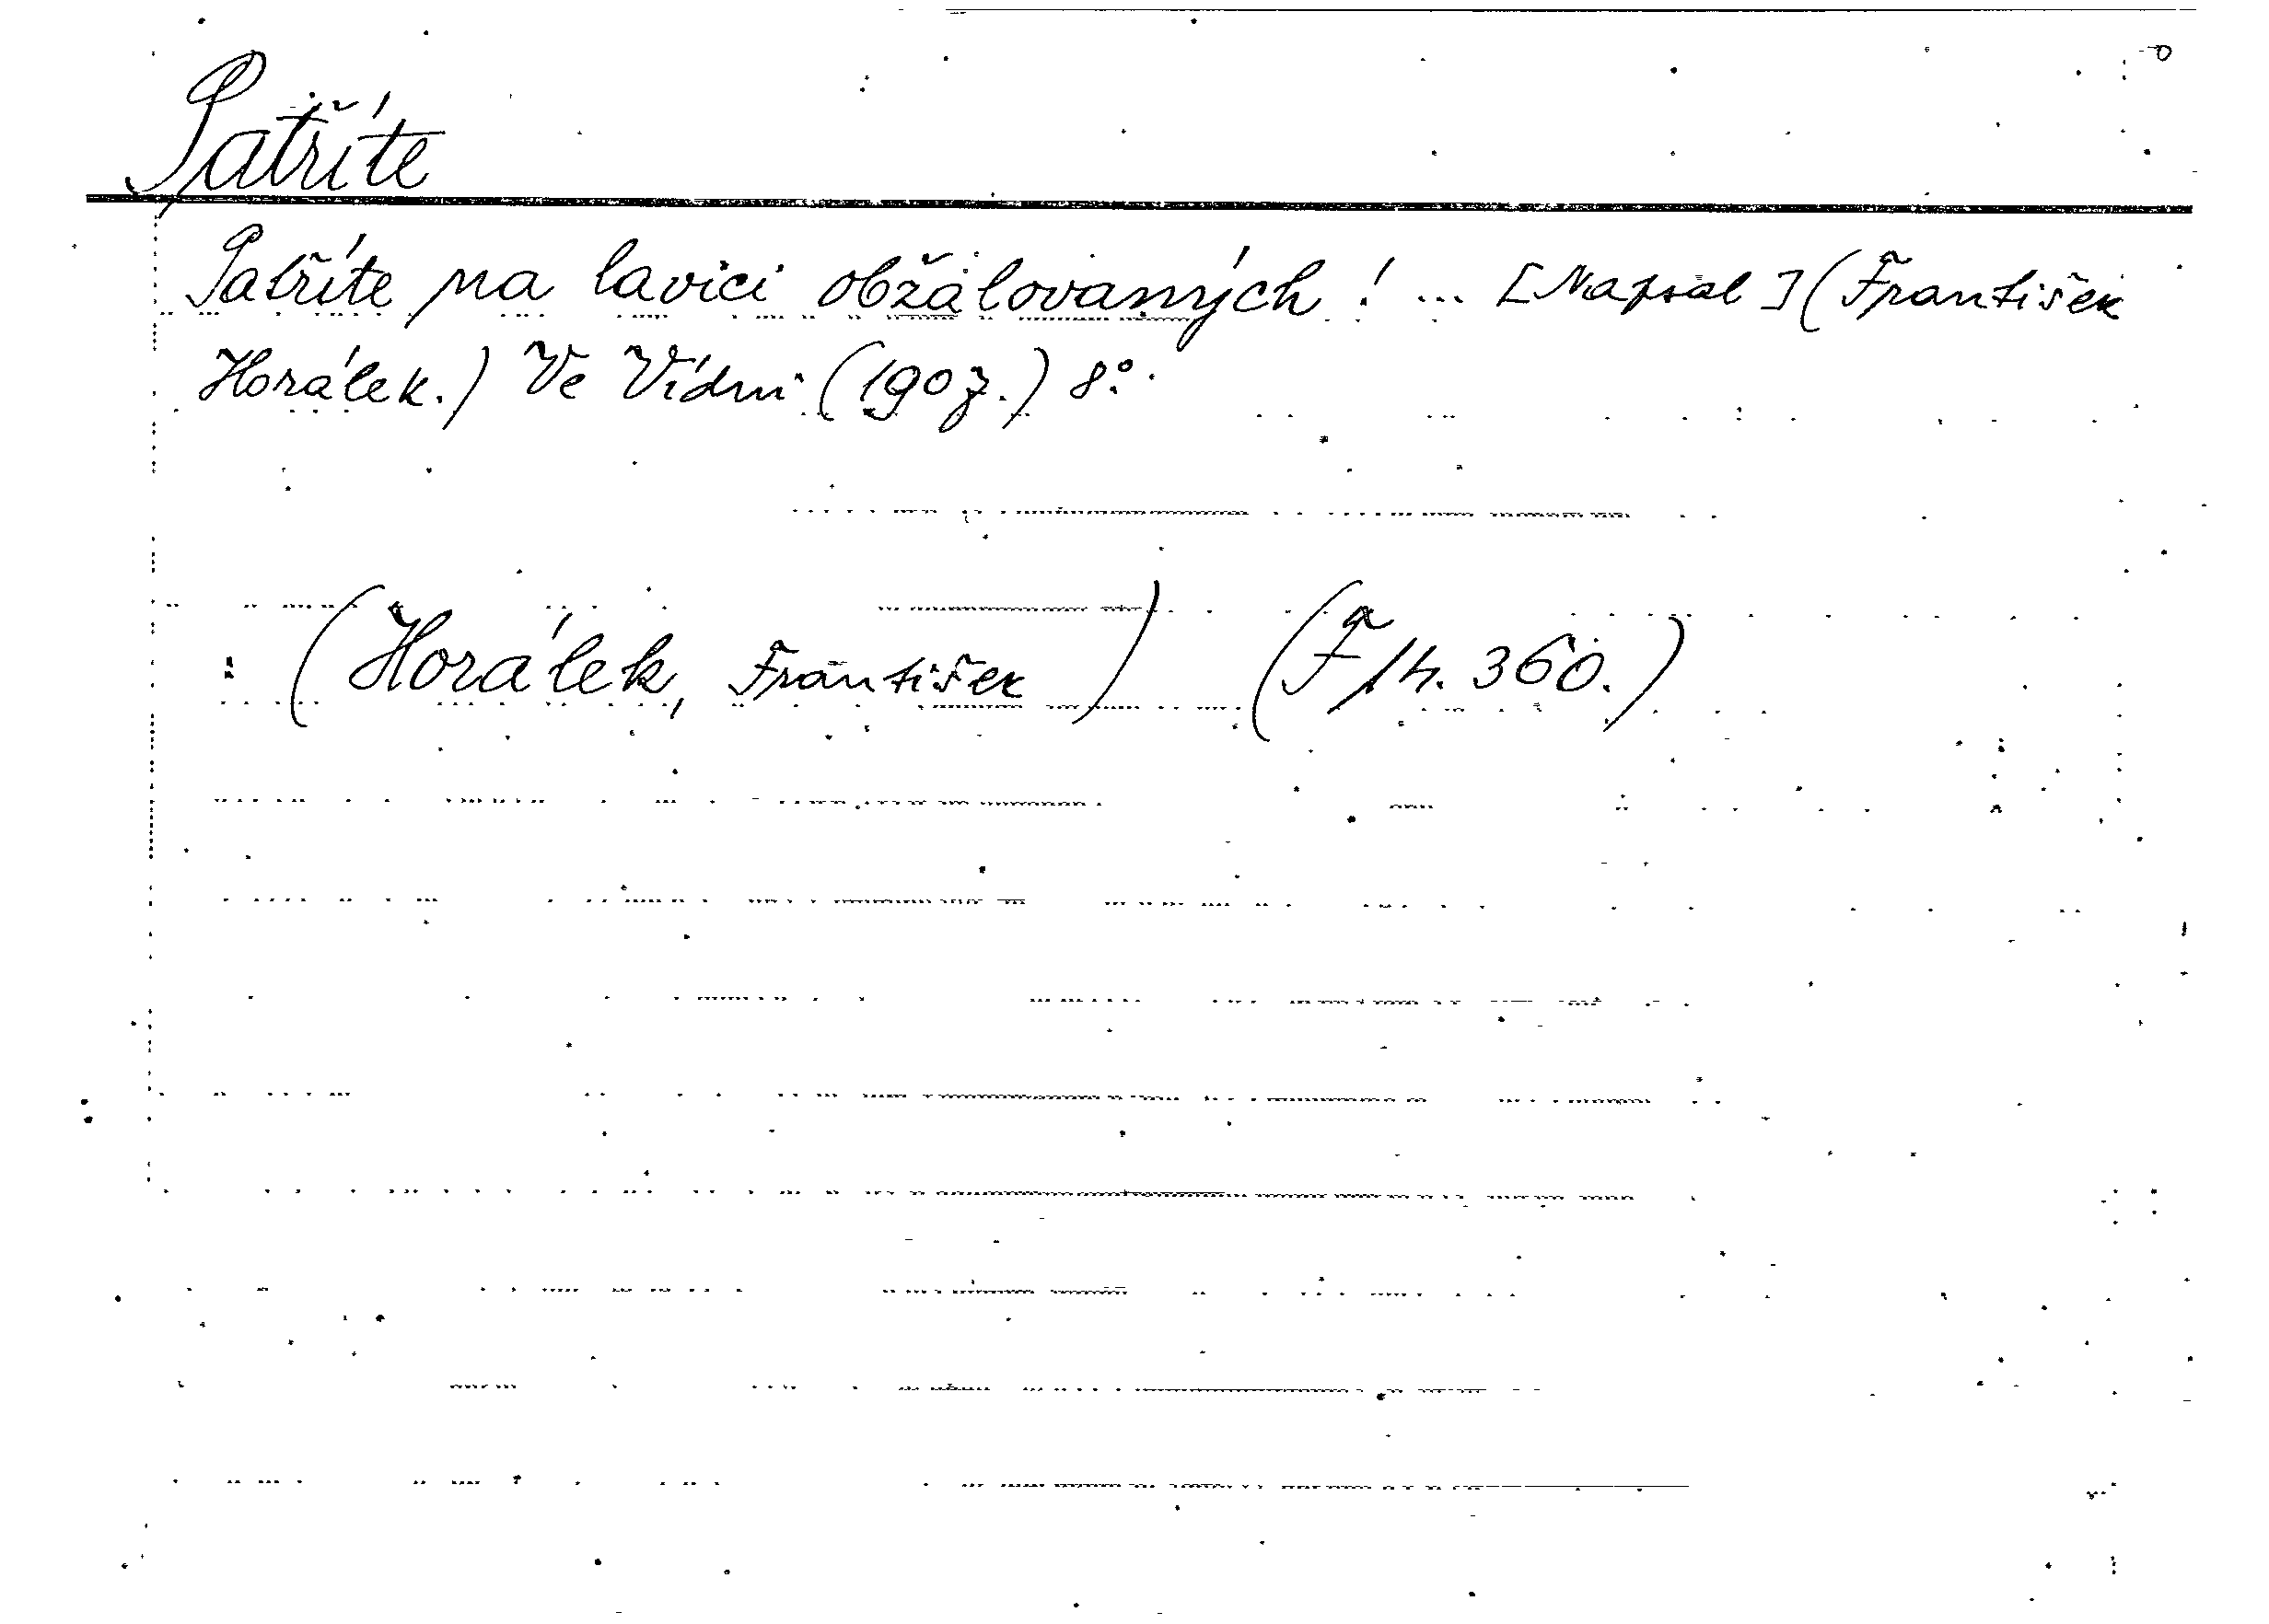 Patříte
Patříte na lavici obžalovaných! ... [Napsal] (František
Horálek.) Ve Vídni (1907.) 8°.
: (Horálek, František) (F/h. 360.)